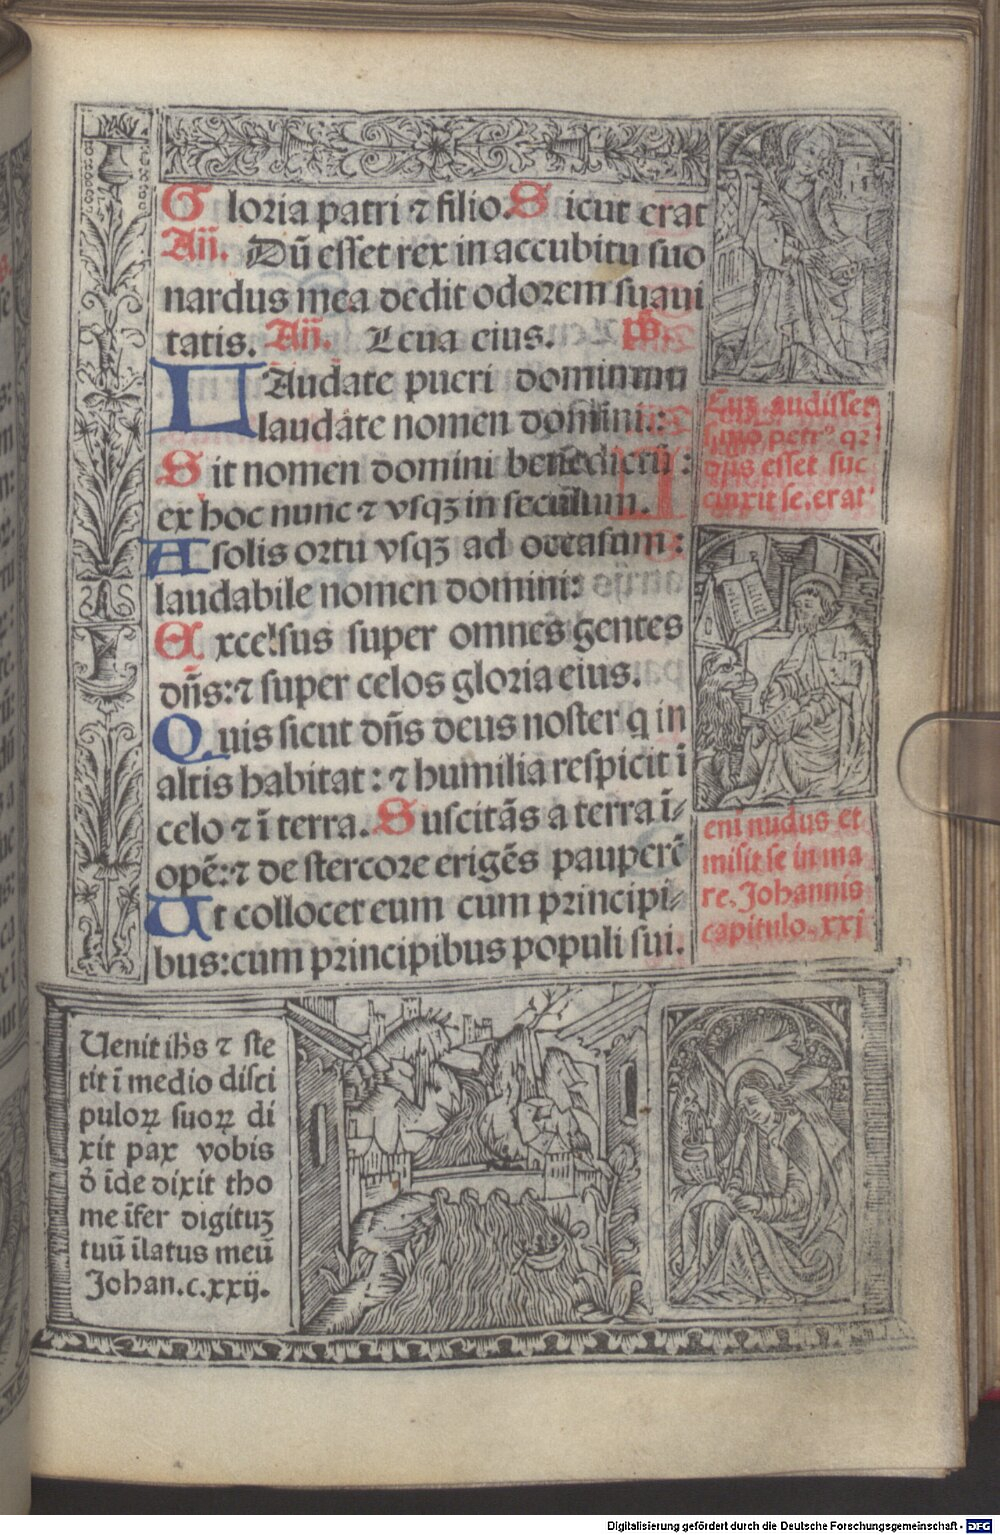 Gloria patri ⁊ filio. Sicut erat
Añ. Dū esset rex in accubitu suo
nardus mea dedit odorem suaui
tatis. Añ. Leua eius. ps̄.
LAudate pueri dominum
laudate nomen domini:
Sit nomen domini benedictū:
ex hoc nunc ⁊ vsqꝫ in seculum.
A solis ortu vsqꝫ ad occasum:
laudabile nomen domini:
Excelsus super omnes gentes
dn̄s: ⁊ super celos gloria eius.
Quis sicut dn̄s deus noster q in
altis habitat: ⁊ humilia respicit ī
celo ⁊ ī terra. Suscitās a terra ī-
opē: ⁊ de stercore erigēs pauperē
Ut collocet eum cum principi-
bus: cum principibus populi sui.
Cuꝫ audisset
simo petrꝰ qꝛ
dn̄s esset suc
cinxit se. erat
eni nudus et
misit se in ma
re. Johannis
capitulo. xxj
Uenit ih̄s ⁊ ste
tit ī medio disci
puloꝝ suoꝝ di
xit pax vobis
ō īde dixit tho
me īfer digituꝫ
tuū ī latus meū
Johan. c. xxij.
Digitalisierung gefördert durch die Deutsche Forschungsgemeinschaft - DFG